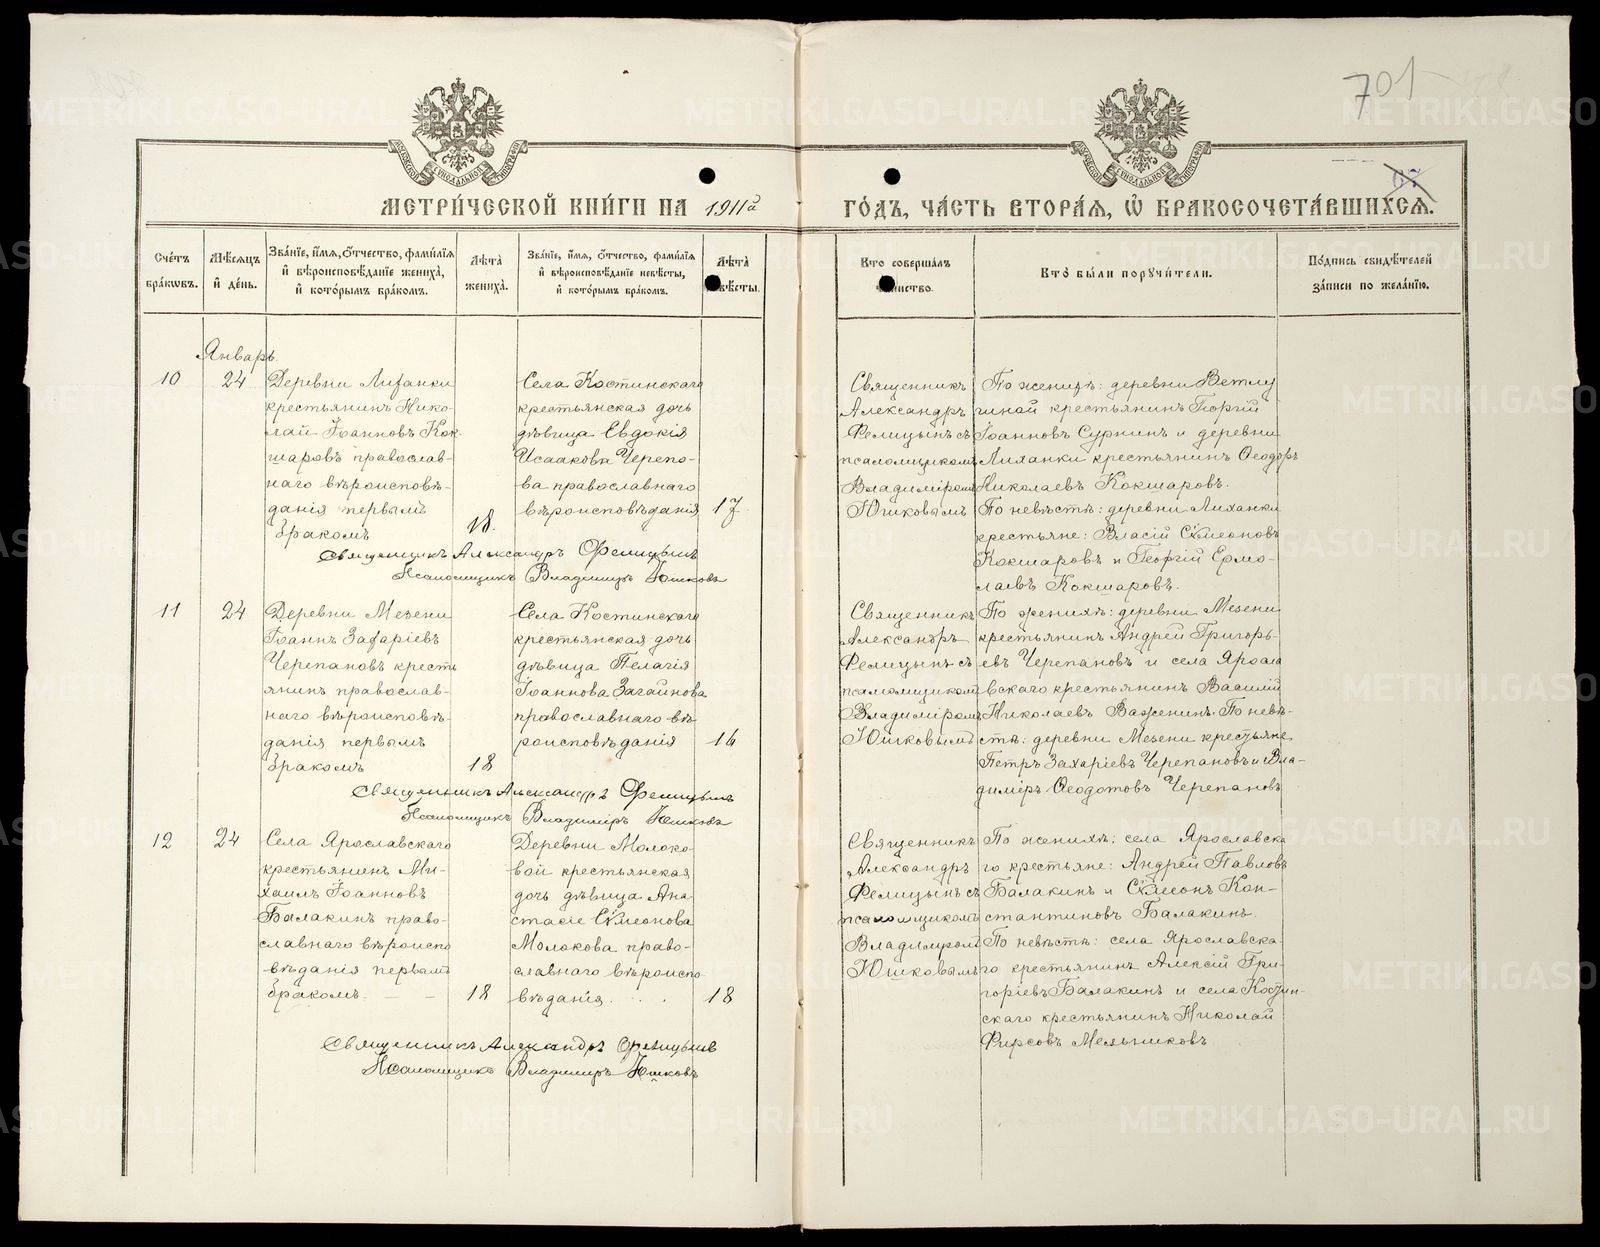 701
67
МЕТРИ́ЧЕСКОЙ КНИ́ГИ НА 1911й ГО́ДЪ, ЧА́СТЬ ВТОРА́Я, Ѡ БРАКОСОЧЕТА́ВШИХСЯ.
Сче́тъ бра́кωвъ.
Мѣ́сяцъ й де́нь.
Зва́нїе, и́мя, ѻ́тчество, фами́лїя й вѣроисповѣ́данїе жениха́, й кото́рымъ бра́комъ.
Лѣ́та жениха́.
Зва́нїе, и́мя, ѻ́тчество, фами́лїя й вѣроисповѣ́данїе невѣ́сты, й кото́рымъ бра́комъ.
Лѣ́та невѣ́сты.
Кто̀ соверша́лъ та́инство.
Кто̀ бы́ли порꙋчи́тели.
По́дпись свидѣ́телей за́писи по жела́нїю.
Январь.
10
24
Деревни Лиханки
крестьянинъ Нико-
лай Іоанновъ Кок-
шаровъ православ-
наго вѣроисповѣ-
данія первымъ
бракомъ
18.
Села Костинскаго
крестьянская дочь
дѣвица Евдокія
Исаакова Черепо-
ва православнаго
вѣроисповѣданія
17
Священникъ
Александръ
Фелицынъ съ
псаломщикомъ
Владиміромъ
Юшковымъ
По женихѣ: деревни Ветлу
гиной крестьянинъ Георгій
Іоанновъ Суринъ и деревни
Лиханки крестьянинъ Ѳеодоръ
Николаевъ Кокшаровъ.
По невѣстѣ: деревни Лиханки
крестьяне: Власій Симеоновъ
Кокшаровъ и Георгій Ермо-
лаевъ Кокшаровъ.
Священникъ Александръ Фелицынъ
Псаломщикъ Владиміръ Юшковъ
11
24
Деревни Мезени
Іоаннъ Захаріевъ
Черепановъ кресть
янинъ православ-
наго вѣроисповѣ-
данія первымъ
бракомъ
18
Села Костинскаго
крестьянская дочь
дѣвица Пелагія
Іоаннова Загайнова
православнаго вѣ-
роисповѣданія
16
Священникъ
Александръ
Фелицынъ съ
псаломщикомъ
Владиміромъ
Юшковымъ
По женихѣ: деревни Мезени
крестьянинъ Андрей Григорь-
евъ Черепановъ и села Яросла
вскаго крестьянинъ Василій
Николаевъ Важенинъ. По невѣ-
стѣ: деревни Мезени крестьяне
Петръ Захаріевъ Черепановъ и Вла-
диміръ Ѳеодотовъ Черепановъ
Священникъ Александръ Фелицынъ
Псаломщикъ Владиміръ Юшковъ
12
24
Села Ярославскаго
крестьянинъ Ми-
хаилъ Іоанновъ
Балакинъ право-
славнаго вѣроиспо
вѣданія первымъ
бракомъ. — —
18
Деревни Молоко-
вой крестьянская
дочь дѣвица Ана-
стасіе Симеонова
Молокова право-
славнаго вѣроиспо
вѣданія. . . .
18
Священникъ
Александръ
Фелицынъ съ
псаломщикомъ
Владиміромъ
Юшковымъ
По женихѣ: села Ярославска
го крестьяне: Андрей Павловъ
Балакинъ и Симеонъ Кон-
стантиновъ Балакинъ.
По невѣстѣ: села Ярославска
го крестьянинъ Алексій Гри-
горіевъ Балакинъ и села Костин-
скаго крестьянинъ Николай
Фирсовъ Мельниковъ
Священникъ Александръ Фелицынъ
Псаломщикъ Владиміръ Юшковъ
METRIKI.GASO-URAL.RU